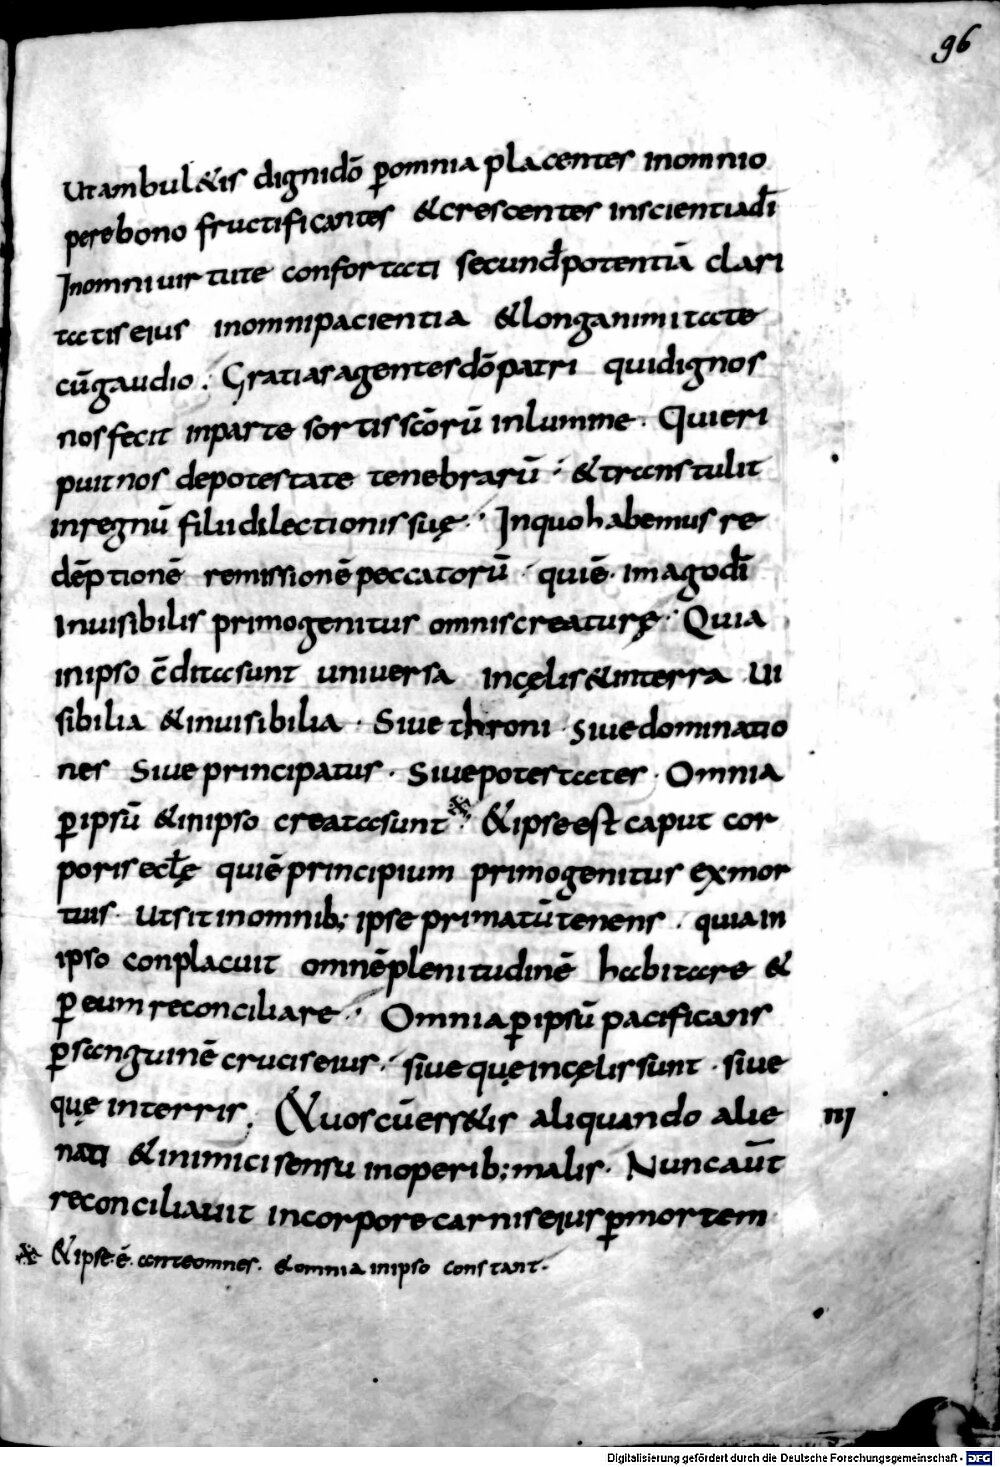 96
Ut ambul&is dignidō ꝑomnia placentes inomnio
perebono fructificantes &crescentes inscientiadī
Inomniuirtute confortati secundꝉpotentiā clari
tatiseius inomnipacientia &longanimitate
cūgaudio. Gratiasagentesdōpatri quidignos
nosfecit inparte sortisscōrū inlumine. Quieri
puitnos depotestate tenebrarū &transtulit
inregnū filiidilectionissuę. Inquohabemusre
dēptionē remissionēpeccatorū quiē. imagodī
inuisibilis primogenitus omniscreaturę. Quia
inipso c̄ditasunt uniuersa incęlis&interra ui
sibilia &inuisibilia. Siue throni. siuedominatio
nes siueprincipatus. siuepotestates. Omnia
ꝑipsū &inipso creatasunt &ipseest caput cor
porisecłę quiēprincipium primogenitus exmor
tuis. utsitinomnib; ipseprimatūtenens. quiain
ipso conplacuit omnēplenitudinē habitare &
ꝑeumreconciliare. Omniaꝑipsū pacificans
ꝑsanguinē cruciseius. siuequęincęlissunt. siue
quęinterris. &uoscūess&is aliquando alie
nati &inimicisensu inoperib;malis. Nuncaūt
reconciliauit incorporecarniseiusꝑmortem
&ipse.ē. anteomnes. &omnia inipso constant.
nj
Digitalisierung gefördert durch die Deutsche Forschungsgemeinschaft - DFG